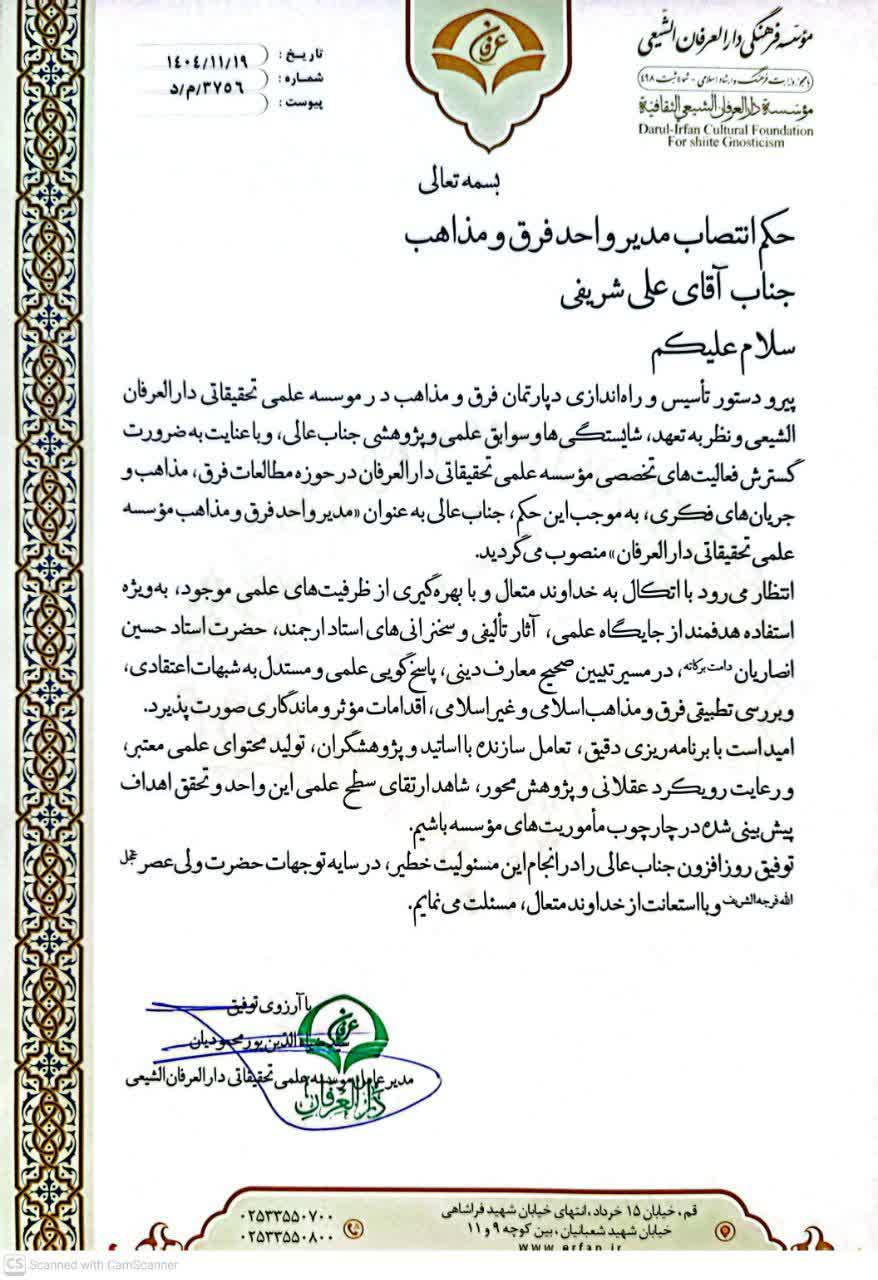 مؤسسه فرهنگی دارالعرفان الشیعی
مؤسسة دارالعرفان الشیعی الثقافیة
Darul-Irfan Cultural Foundation
For shiite Gnosticism
عرفان
تاریخ : ۱۴۰۴/۱۱/۱۹
شماره : ۳۷۵۶/م/د
پیوست :
بسمه تعالی
حکم انتصاب مدیر واحد فرق و مذاهب
جناب آقای علی شریفی
سلام علیکم
پیرو دستور تأسیس و راه‌اندازی دپارتمان فرق و مذاهب در موسسه علمی تحقیقاتی دارالعرفان
الشیعی و نظر به تعهد، شایستگی‌ها و سوابق علمی و پژوهشی جناب‌عالی، و با عنایت به ضرورت
گسترش فعالیت‌های تخصصی مؤسسه علمی تحقیقاتی دارالعرفان در حوزه مطالعات فرق، مذاهب و
جریان‌های فکری، به موجب این حکم، جناب‌عالی به عنوان «مدیر واحد فرق و مذاهب مؤسسه
علمی تحقیقاتی دارالعرفان» منصوب می‌گردید.
انتظار می‌رود با اتکال به خداوند متعال و با بهره‌گیری از ظرفیت‌های علمی موجود، به‌ویژه
استفاده هدفمند از جایگاه علمی، آثار تألیفی و سخنرانی‌های استاد ارجمند، حضرت استاد حسین
انصاریان دامت برکاته، در مسیر تبیین صحیح معارف دینی، پاسخ‌گویی علمی و مستدل به شبهات اعتقادی،
و بررسی تطبیقی فرق و مذاهب اسلامی و غیر اسلامی، اقدامات مؤثر و ماندگاری صورت پذیرد.
امید است با برنامه‌ریزی دقیق، تعامل سازنده با اساتید و پژوهشگران، تولید محتوای علمی معتبر،
و رعایت رویکرد عقلانی و پژوهش‌محور، شاهد ارتقای سطح علمی این واحد و تحقق اهداف
پیش‌بینی شده در چارچوب مأموریت‌های مؤسسه باشیم.
توفیق روزافزون جناب‌عالی را در انجام این مسئولیت خطیر، در سایه توجهات حضرت ولی عصر عجل
الله فرجه الشریف و با استعانت از خداوند متعال، مسئلت می‌نمایم.
با آرزوی توفیق
الدین پورمحمودیان
مدیر عامل موسسه علمی تحقیقاتی دارالعرفان الشیعی
عرفان
دارالعرفان
قم، خیابان ۱۵ خرداد، انتهای خیابان شهید فراشاهی
خیابان شهید شعبانیان، بین کوچه ۹ و ۱۱
www.erfan.ir
۰۲۵۳۳۵۵۰۷۰۰
۰۲۵۳۳۵۵۰۸۰۰
CS Scanned with CamScanner